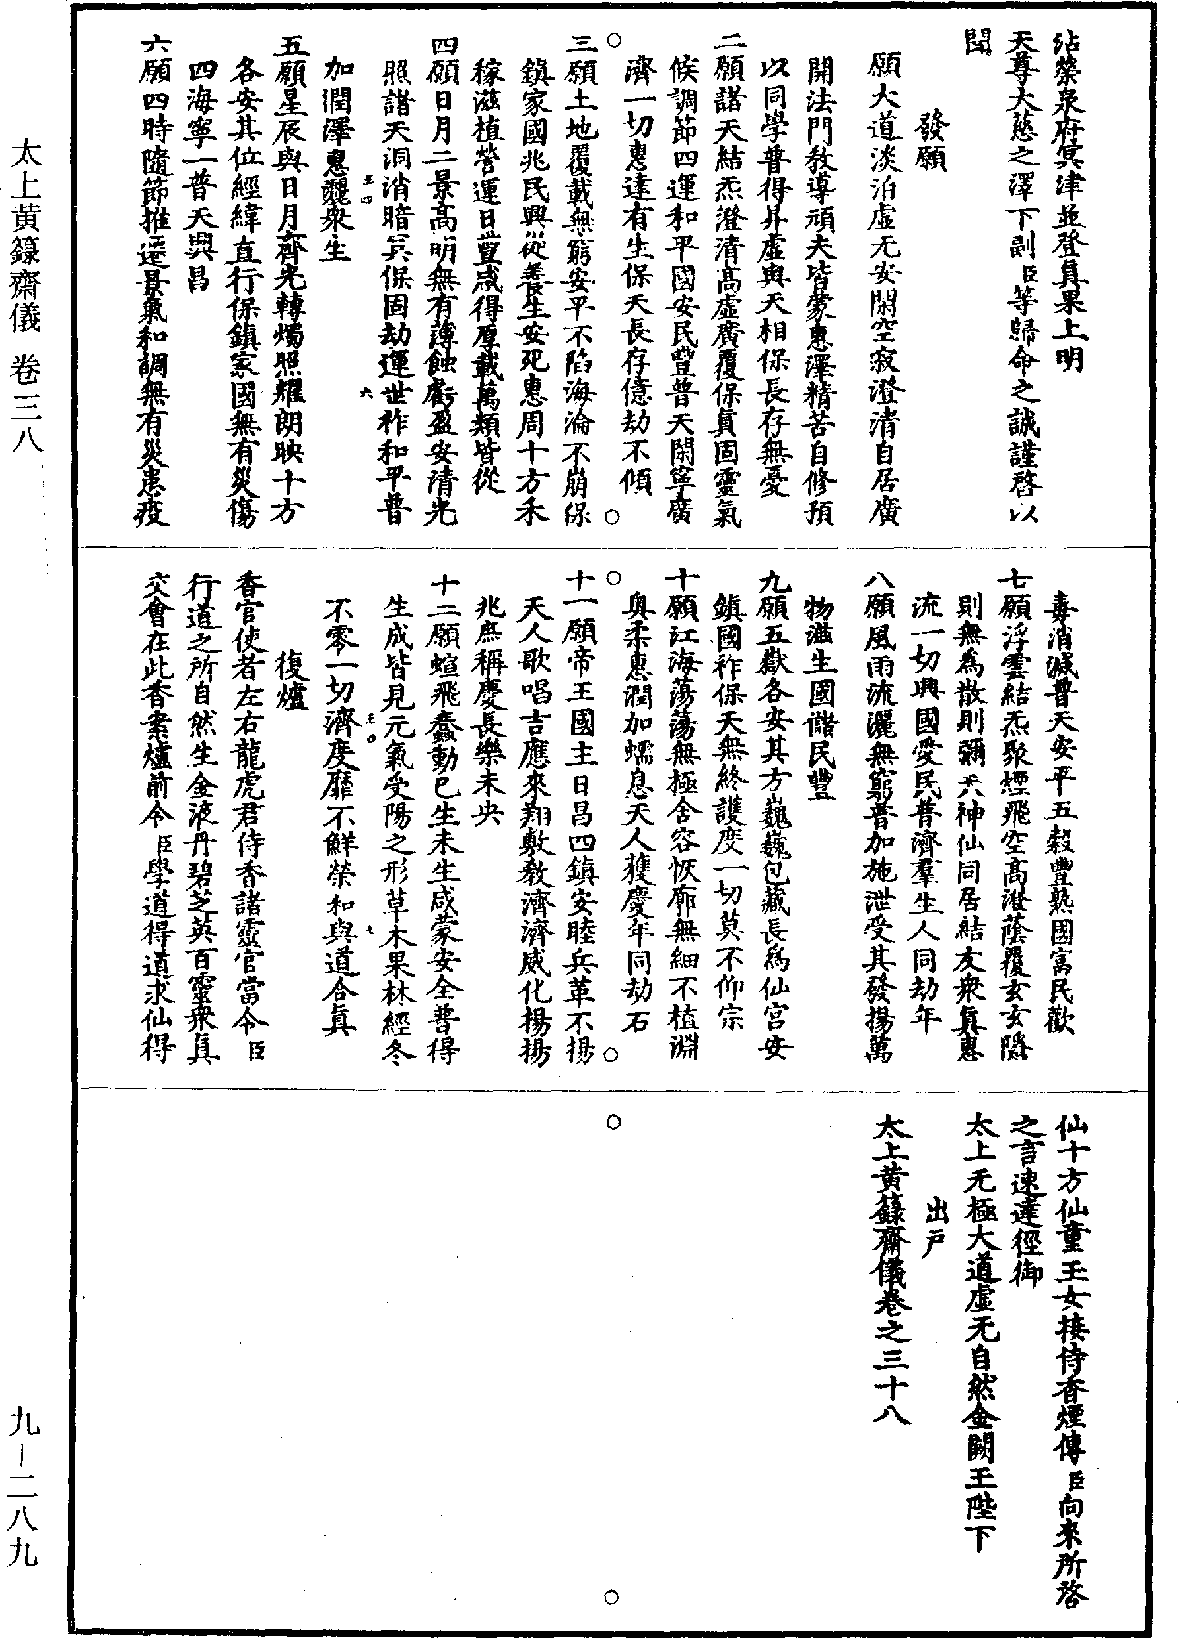 沾縈泉府冥津並登真果上明
天尊大慈之澤下副臣等歸命之誠謹啓以
聞
發願
願大道淡泊虛无安閑空寂澄清自居廣
開法門教導頑夫皆蒙惠澤精苦自修預
以同學普得昇虛與天相保長存無憂
二願諸天結炁澄清高虛廣覆保真固靈氣
候調節四運和平國安民豐普天閑寧廣
濟一切惠達有生保天長存億劫不傾
三願土地覆載無窮安平不陷海淪不崩保
鎮家國兆民興從養生安死惠周十方禾
稼滋植營運日豐咸得厚載萬類皆從
四願日月二景高明無有薄蝕虧盈安清光
照諸天洞消暗冥保固劫運世祚和平普
加潤澤惠霑眾生
五願星辰與日月齊光轉燭照耀朗映十方
各安其位經緯直行保鎮家國無有災傷
四海寧一普天興昌
六願四時隨節推遷景氣和調無有災患疫
毒消滅普天安平五穀豐熟國富民歡
七願浮雲結炁聚煙飛空高澄蔭覆玄玄隱
則無為散則彌天神仙同居結友眾真惠
流一切興國愛民普濟羣生人同劫年
八願風雨流灑無窮普加施泄受其發揚萬
物滋生國儲民豐
九願五嶽各安其方巍巍包藏長為仙宮安
鎮國祚保天無終護度一切莫不仰宗
十願江海蕩蕩無極含容恢廓無細不植淵
奧柔惠潤加蠕息天人獲慶年同劫石
十一願帝王國主日昌四鎮安睦兵革不揚
天人歌唱吉應來翔敷教濟濟威化揚揚
兆庶稱慶長樂未央
十二願蝖飛蠢動已生未生咸蒙安全普得
生成皆見元氣受陽之形草木果林經冬
不零一切濟度靡不鮮榮和與道合真
復爐
香官使者左右龍虎君侍香諸靈官當令臣
行道之所自然生金液丹碧芝英百靈眾真
交會在此香案爐前令臣學道得道求仙得
仙十方仙童玉女接侍香煙傳臣向來所啓
之言速達徑御
太上无極大道虛无自然金闕玉陛下
出戶
太上黃籙齋儀卷之三十八
太上黃籙齋儀 卷三八
九－二八九